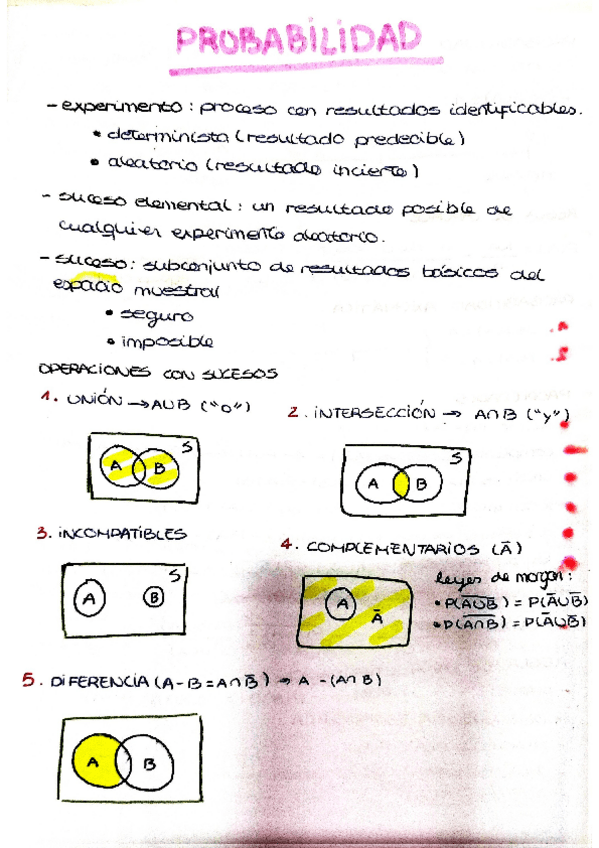 PROBABILIDAD
- experimento: proceso con resultados identificables.
• determinista (resultado predecible)
• aleatorio (resultado incierto)
- suceso elemental: un resultado posible de
cualquier experimento aleatorio.
- suceso: subconjunto de resultados básicos del
espacio muestral
• seguro
• imposible
OPERACIONES CON SUCESOS
1. UNIÓN → A∪B ("o")
2. INTERSECCIÓN → A∩B ("y")
A B S
A B S
3. INCOMPATIBLES
4. COMPLEMENTARIOS (Ā)
A B S
A Ā
leyes de morgan:
• P(A̅∪̅B̅) = P(Ā∪B̅)
• P(A̅∩̅B̅) = P(Ā∪B̅)
5. DIFERENCIA (A-B = A∩B̅) → A - (A∩B)
A B